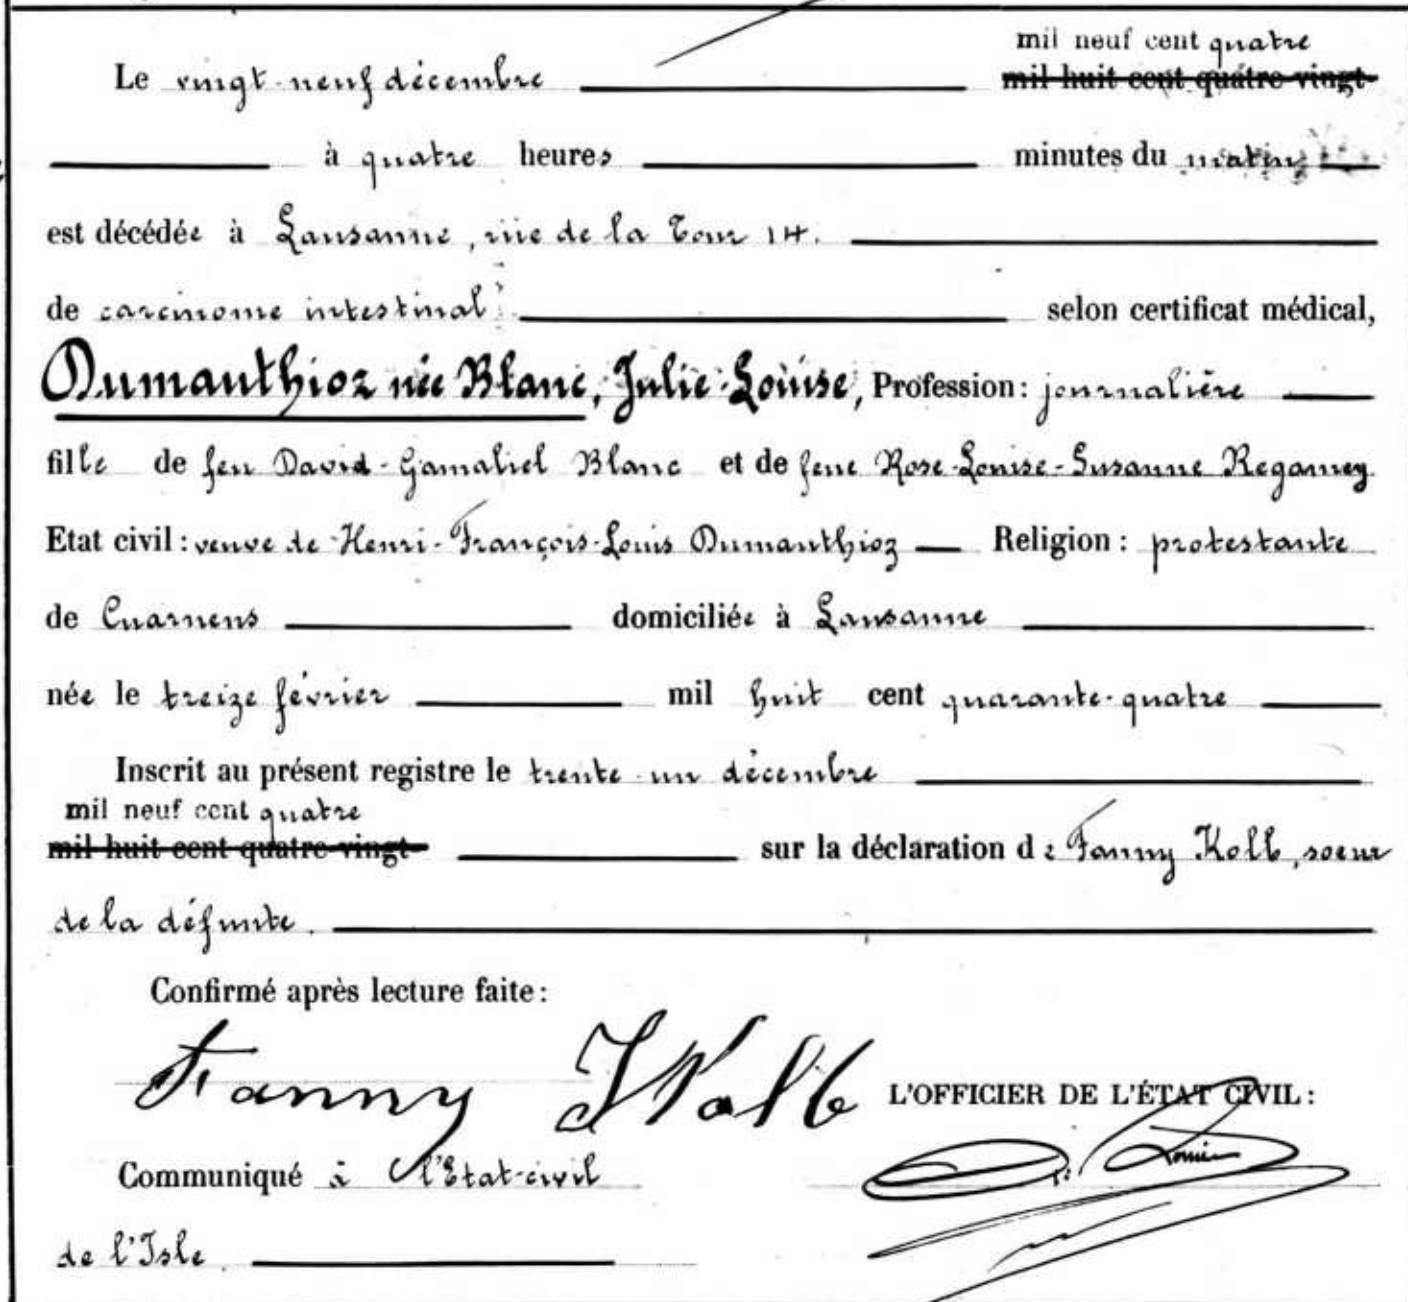 mil neuf cent quatre
Le vingt-neuf décembre mil huit cent quatre-vingt-
à quatre heures minutes du matin
est décédée à Lausanne, rue de la Tour 14.
de carcinome intestinal selon certificat médical,
Dumanthioz née Blanc, Julie-Louise, Profession: journalière
fille de feu David-Gamaliel Blanc et de feue Rose-Louise-Susanne Regamey
Etat civil: veuve de Henri-François-Louis Dumanthioz Religion: protestante
de Cuarnens domiciliée à Lausanne
née le treize février mil huit cent quarante-quatre
Inscrit au présent registre le trente-un décembre
mil neuf cent quatre
mil huit cent quatre-vingt- sur la déclaration de Fanny Kolb, soeur
de la défunte.
Confirmé après lecture faite:
Fanny Kolb
L'OFFICIER DE L'ÉTAT CIVIL:
Communiqué à l'Etat-civil
de l'Isle.